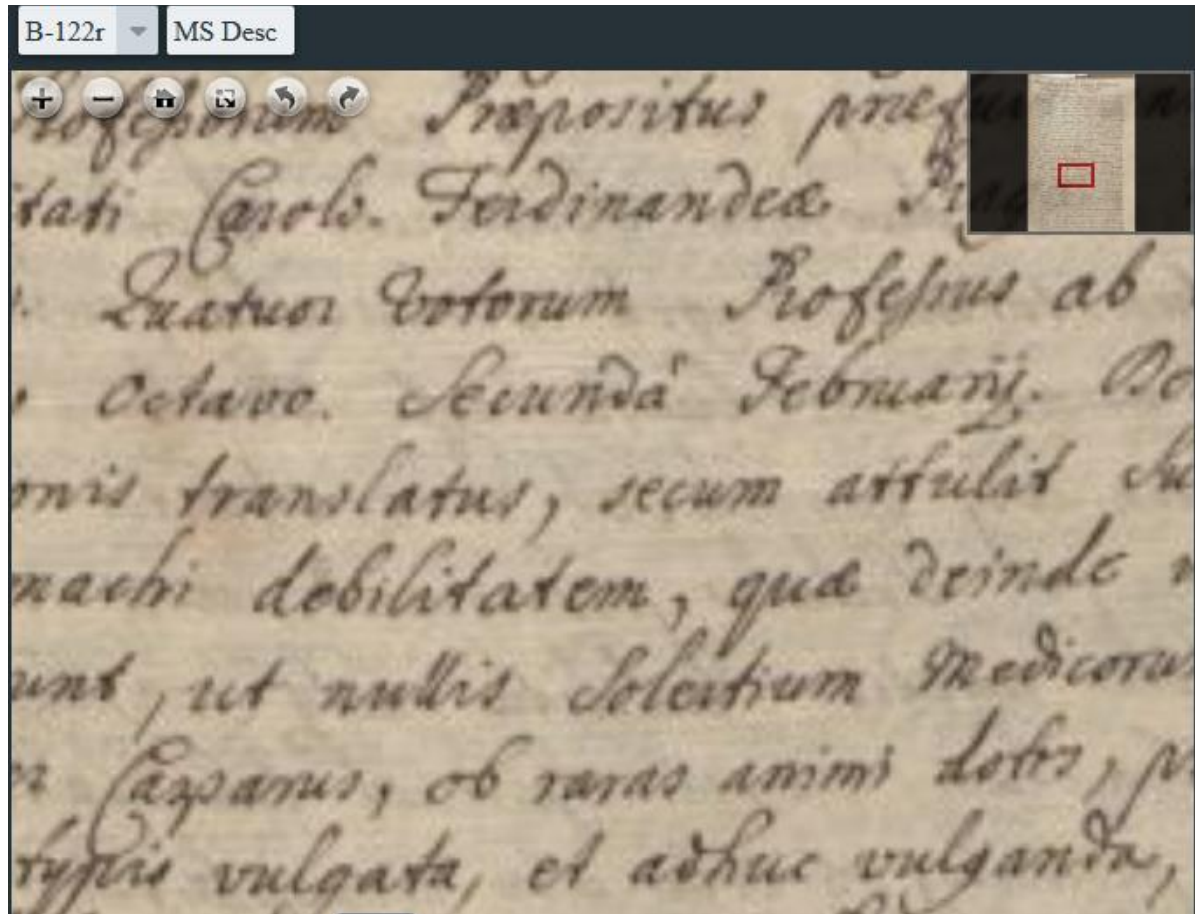 B-122r MS Desc
Professorum Præpositus præfu
tati Carolo. Ferdinandeæ Prag
. Quatuor Votorum Professus ab
Octavo. Secundâ Februarij. Do
onis translatus, secum attulit Su
machi debilitatem, quæ deinde
unt, ut nullis Solertium Medicoru
Casparus, ob raras animi dotes, pr
typis vulgata, et adhuc vulganda,